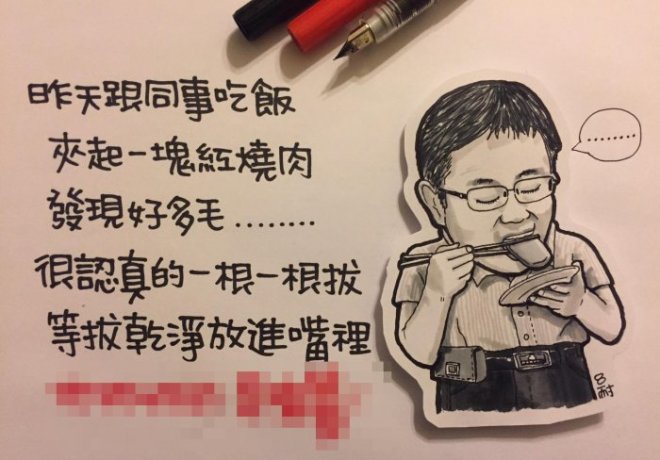 昨天跟同事吃飯
夾起一塊紅燒肉
發現好多毛........
很認真的一根一根拔
等拔乾淨放進嘴裡
........